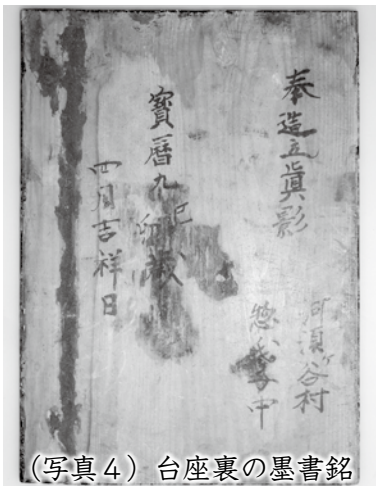 奉造立眞影
須ヶ谷村
惣氏子中
寶暦九己卯歳
四月吉祥日
(写真4) 台座裏の墨書銘